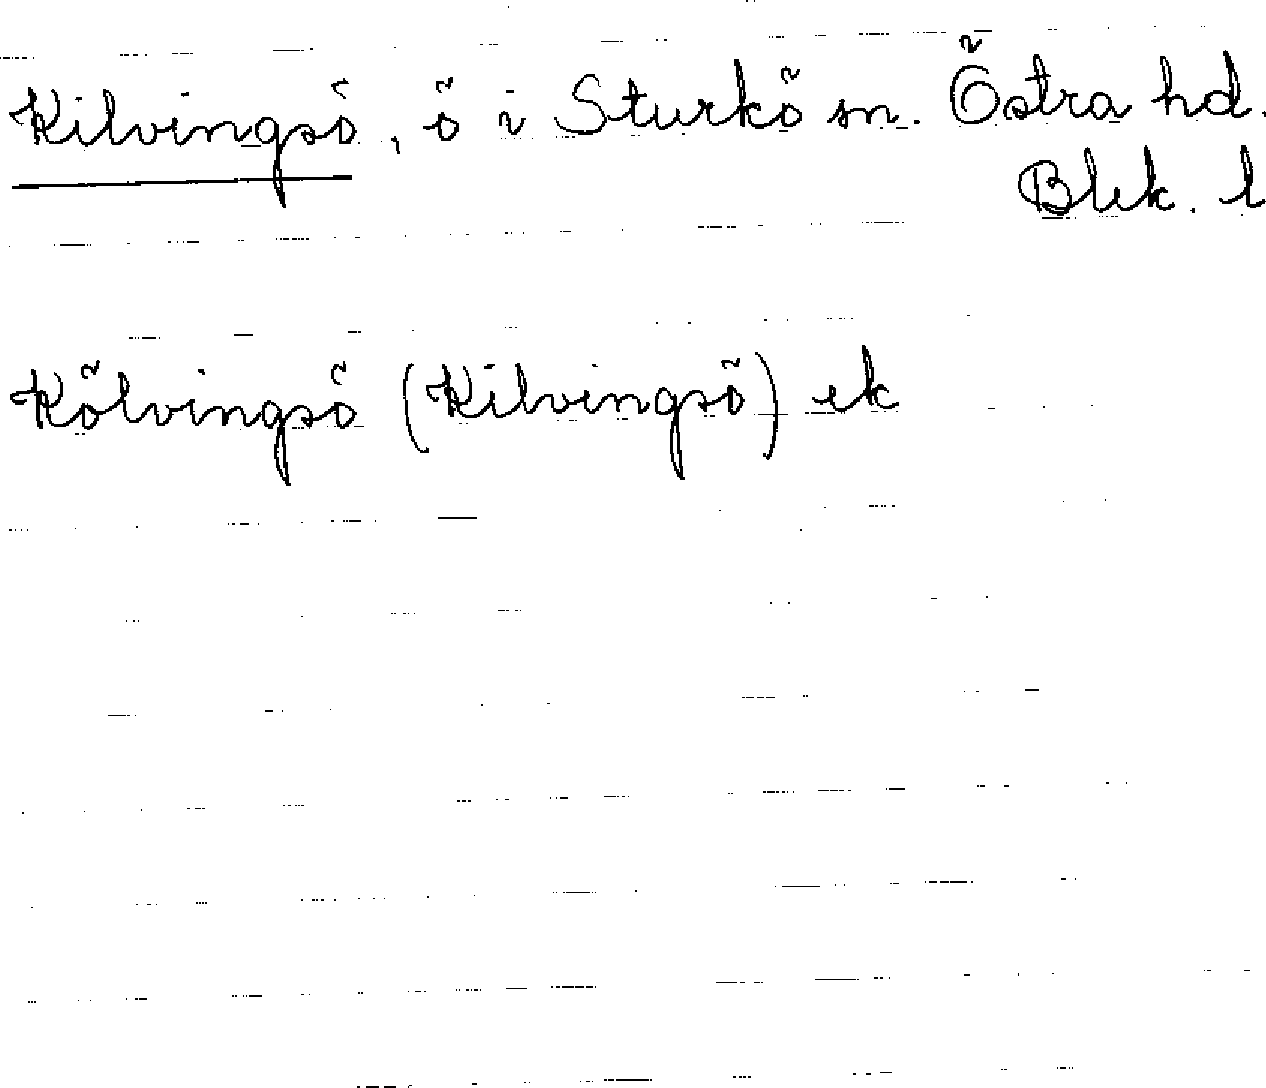 Kilvingsö, ö i Sturkö sn. Östra hd.
Blek. l
Kölvingsö (Kilvingsö) ek